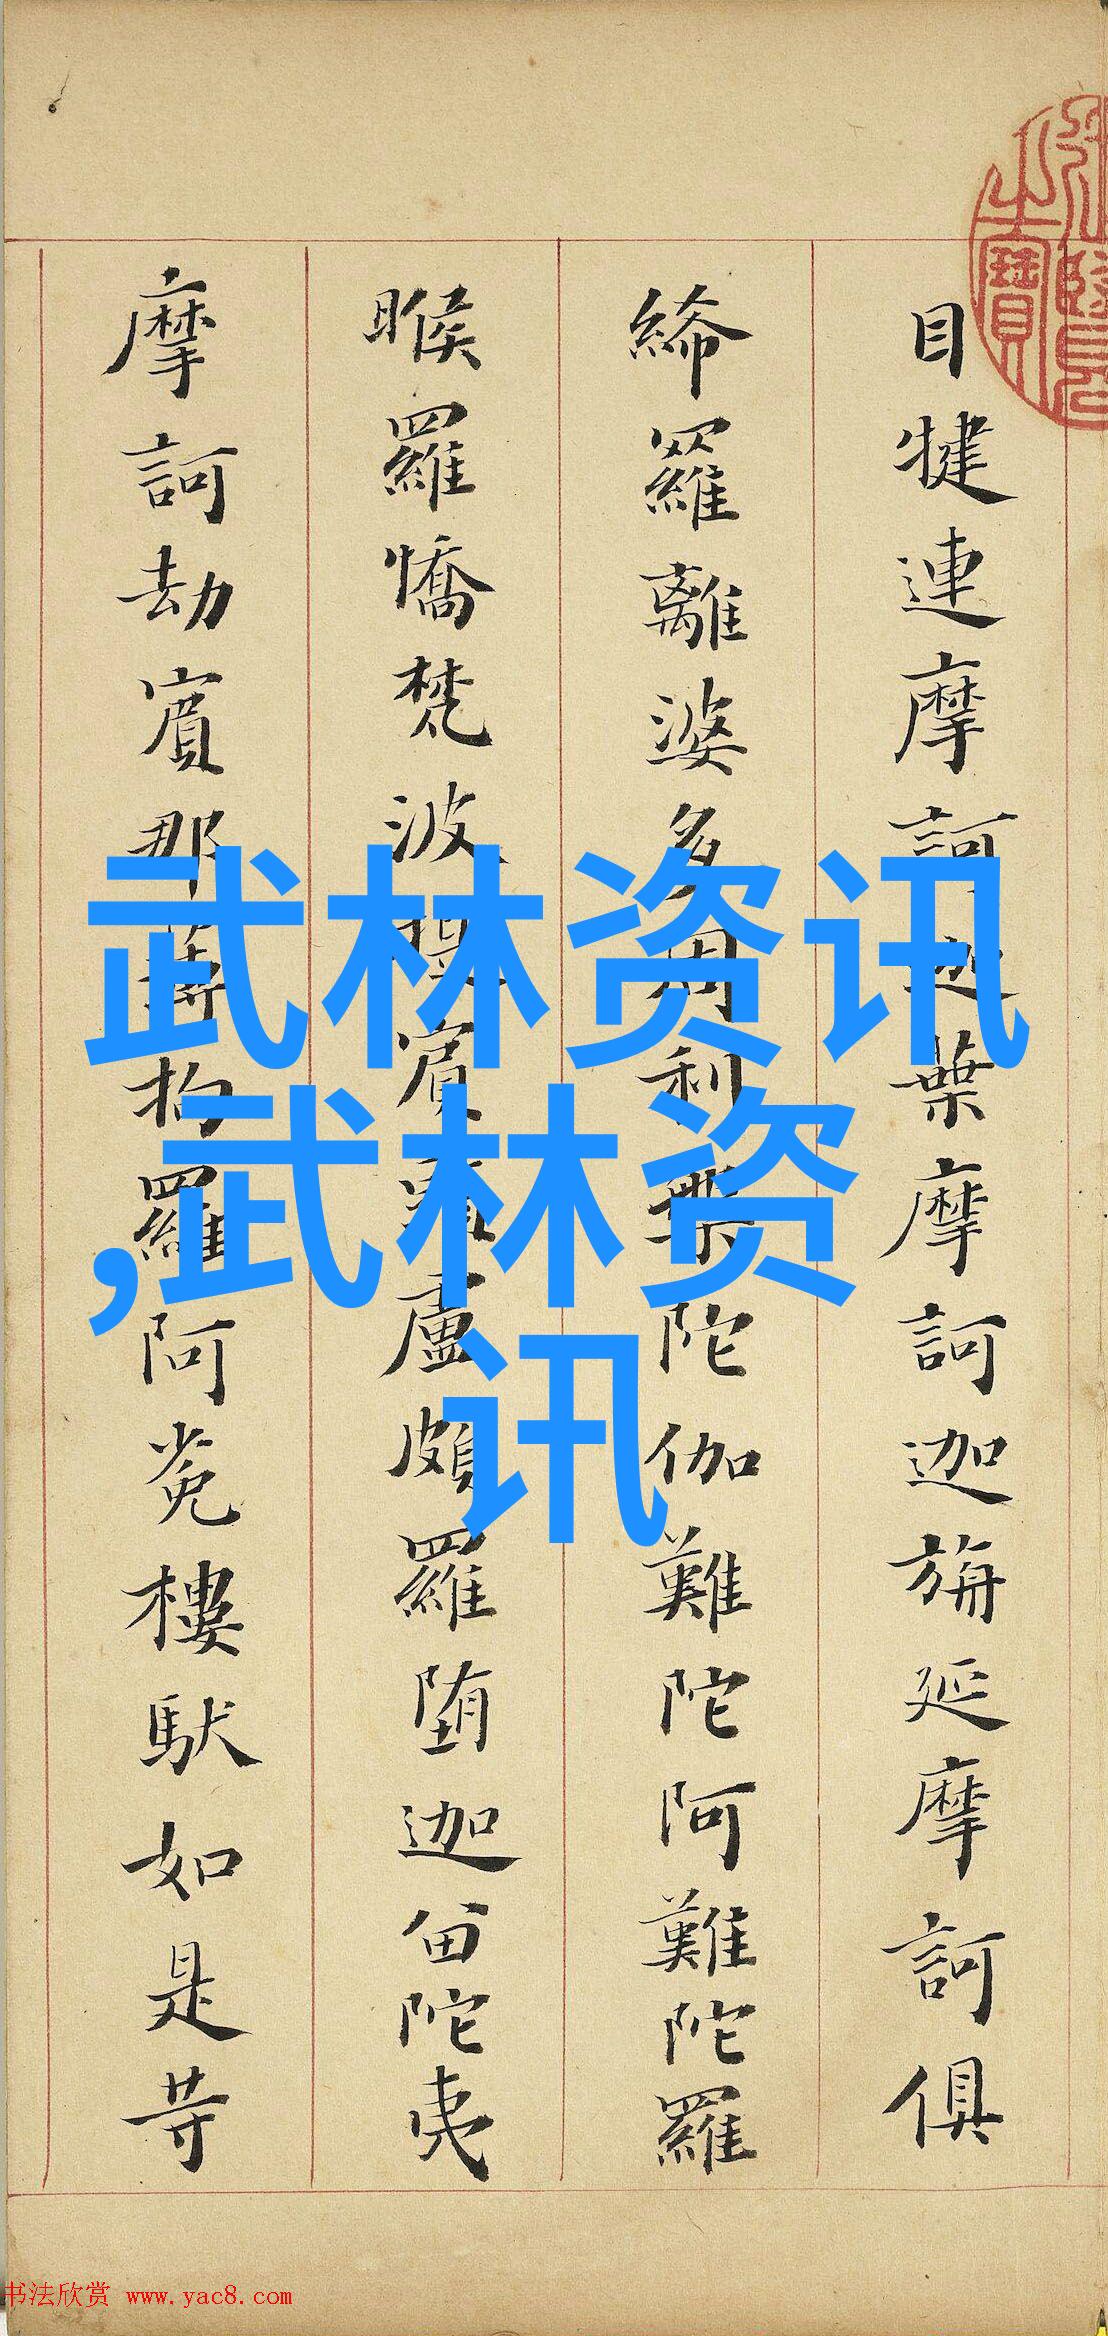 目犍連摩訶迦葉摩訶迦旃延摩訶俱
絺羅離婆多周利槃陀伽難陀阿難陀羅
睺羅憍梵波提賓頭盧頗羅堕迦留陀夷
摩訶劫賓那薄拘羅阿㝹樓馱如是等
之寶
武林资讯
,武林资
讯
书法欣赏 www.yac8.com